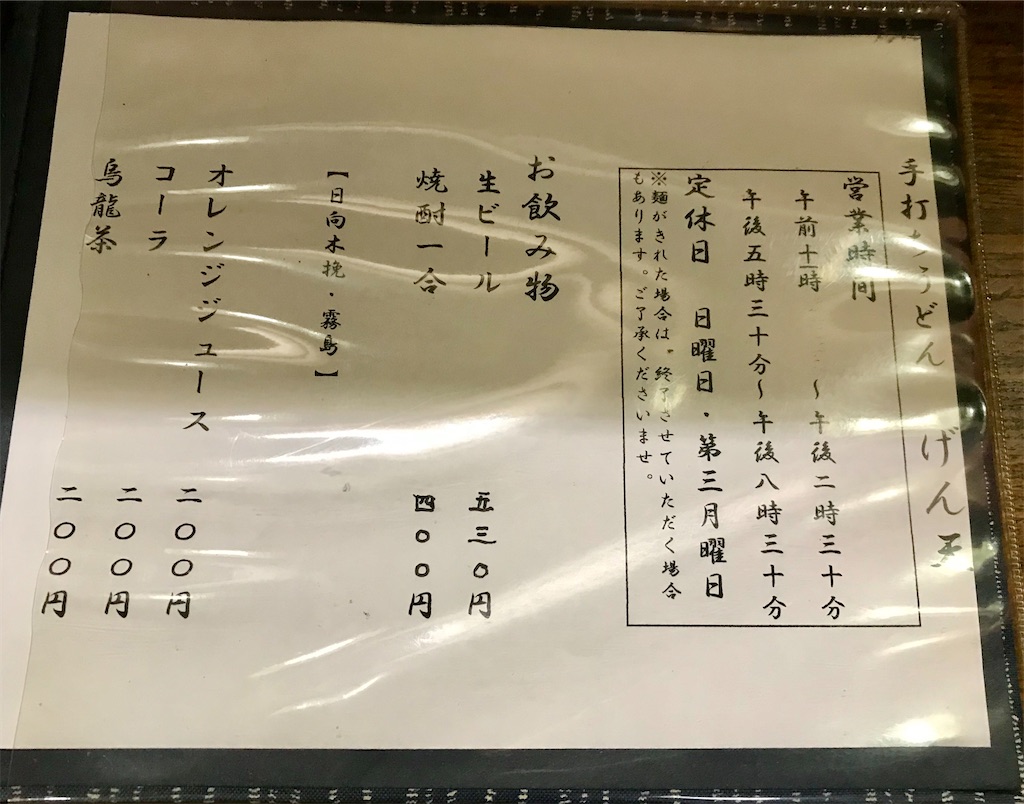 手打ちうどん げん玉
営業時間
午前十一時 〜午後二時三十分
午後五時三十分〜午後八時三十分
定休日 日曜日・第三月曜日
※麺がきれた場合は、終了させていただく場合
もあります。ご了承くださいませ。
お飲み物
生ビール 五三〇円
焼酎一合 四〇〇円
【日向木挽・霧島】
オレンジジュース 二〇〇円
コーラ 二〇〇円
烏龍茶 二〇〇円